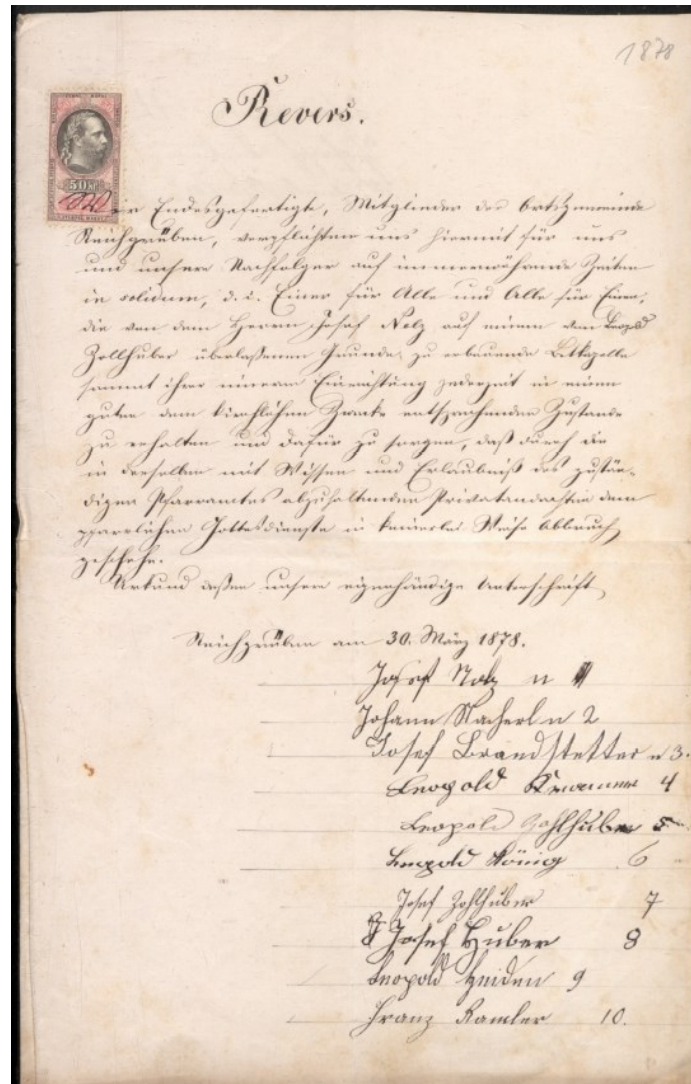 1878
Revers.
50 Kr
Wir Endesgefertigte, Mitglieder der Ortsgemeinde
Reichgrüben, verpflichten uns hiermit für uns
und unsere Nachfolger auf immerwährende Zeiten
in solidum, d. i. Einer für Alle und Alle für Einen,
die von dem Herrn Josef Nolz auf einem von Leopold
Zollhuber überlaßenen Grunde zu erbauende Betkapelle
sammt ihrer inneren Einrichtung jederzeit in einem
guten dem kirchlichen Zwecke entsprechenden Zustande
zu erhalten und dafür zu sorgen, daß durch die
in derselben mit Wissen und Erlaubniß des zustän-
digen Pfarramtes abzuhaltenden Privatandachten dem
pfarrlichen Gottesdienste in keinerlei Weise Abbruch
geschehe.
Urkund deßen unsere eigenhändige Unterschrift
Reichgrüben am 30. März 1878.
Josef Nolz n 1
Johann Macherl n 2
Josef Brandstetter n 3.
Leopold 4
Leopold Zohlhuber 5
Leopold König 6
Josef Zohlhuber 7
Josef Huber 8
Leopold Heiden 9
Franz Ramler 10.